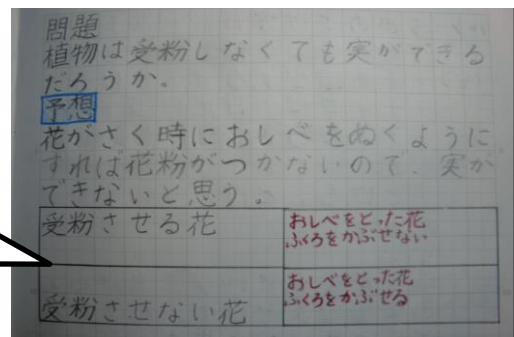 問題
植物は受粉しなくても実ができる
だろうか。
予想
花がさく時におしべをぬくように
すれば花粉がつかないので、実が
できないと思う。
受粉させる花
おしべをとった花
ふくろをかぶせない
受粉させない花
おしべをとった花
ふくろをかぶせる